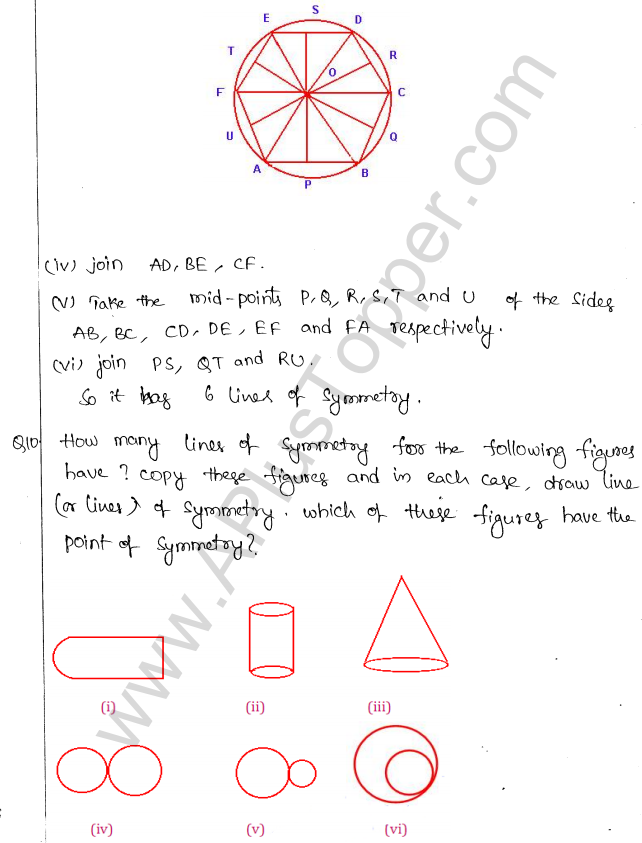 S
E D
T R
O
F C
U Q
A B
P
(iv) join AD, BE, CF.
(V) Take the mid-points P, Q, R, S, T and U of the sides
AB, BC, CD, DE, EF and FA respectively.
(vi) join PS, QT and RU.
So it has 6 lines of symmetry.
Q10 How many lines of symmetry for the following figures
have? copy these figures and in each case, draw line
(or lines) of symmetry. which of these figures have the
point of symmetry?
(i) (ii) (iii)
(iv) (v) (vi)
www.APlusTopper.com